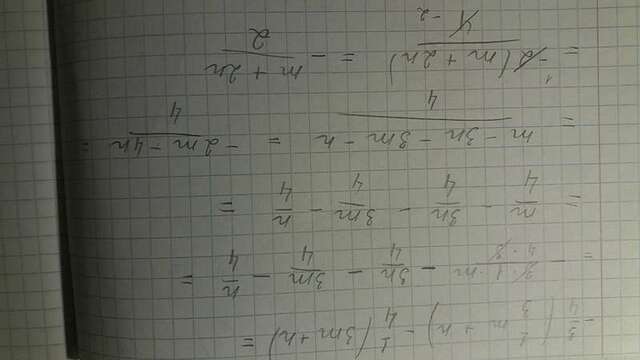 - 3/4 (1/3 m + n) - 1/4 (3m + n) =
= 3 · 1/4 · 3 m - 3n/4 - 3m/4 - n/4 =
= m/4 - 3n/4 - 3m/4 - n/4 =
= m - 3n - 3m - n/4 = -2m - 4n/4 =
= -2(m + 2n)/4 = - m + 2n/2